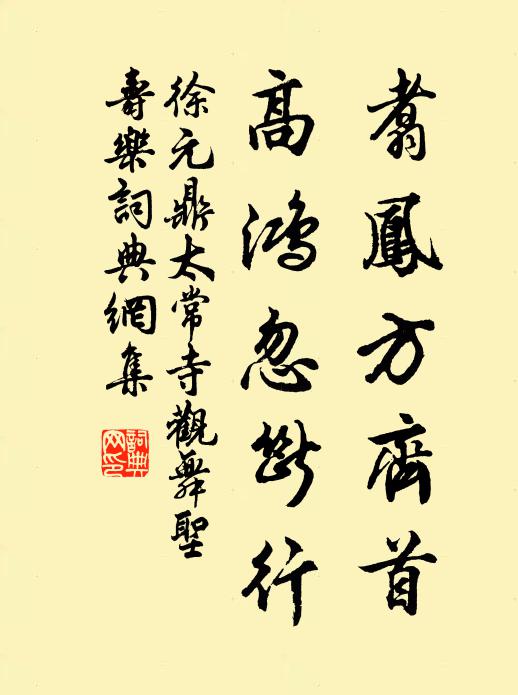 翥鳳方齊首
高鴻忽斷行
徐元鼎太常寺觀舞聖
壽樂詞典網集
詞典
网印